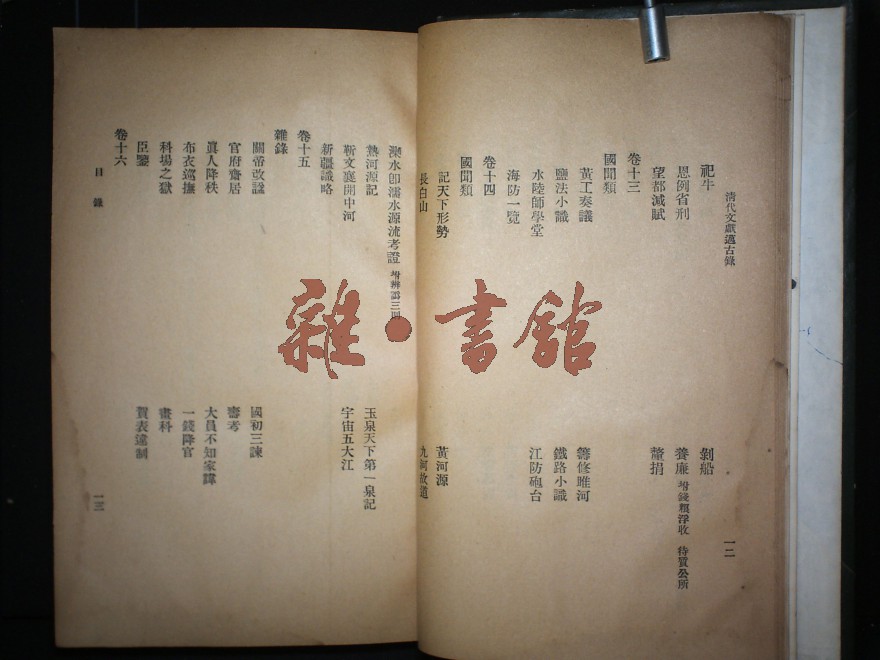 清代文獻邁古錄
一二
祀牛
剝船
恩例省刑
養廉 坿錢糧浮收 待質公所
望都減賦
釐捐
卷十三
國聞類
黃工奏議
籌修睢河
鹽法小識
鐵路小識
水陸師學堂
江防砲台
海防一覽
卷十四
國聞類
記天下形勢
黃河源
長白山
九河故道
灤水卽濡水源流考證 坿辨譌三則
熱河源記
玉泉天下第一泉記
靳文襄開中河
宇宙五大江
新疆識略
卷十五
雜錄
關帝改諡
國初三諫
官府齋居
審考
眞人降秩
大員不知家諱
布衣巡撫
一錢降官
科場之獄
畫科
臣鑒
賀表違制
卷十六
目錄
一三
雜·書館